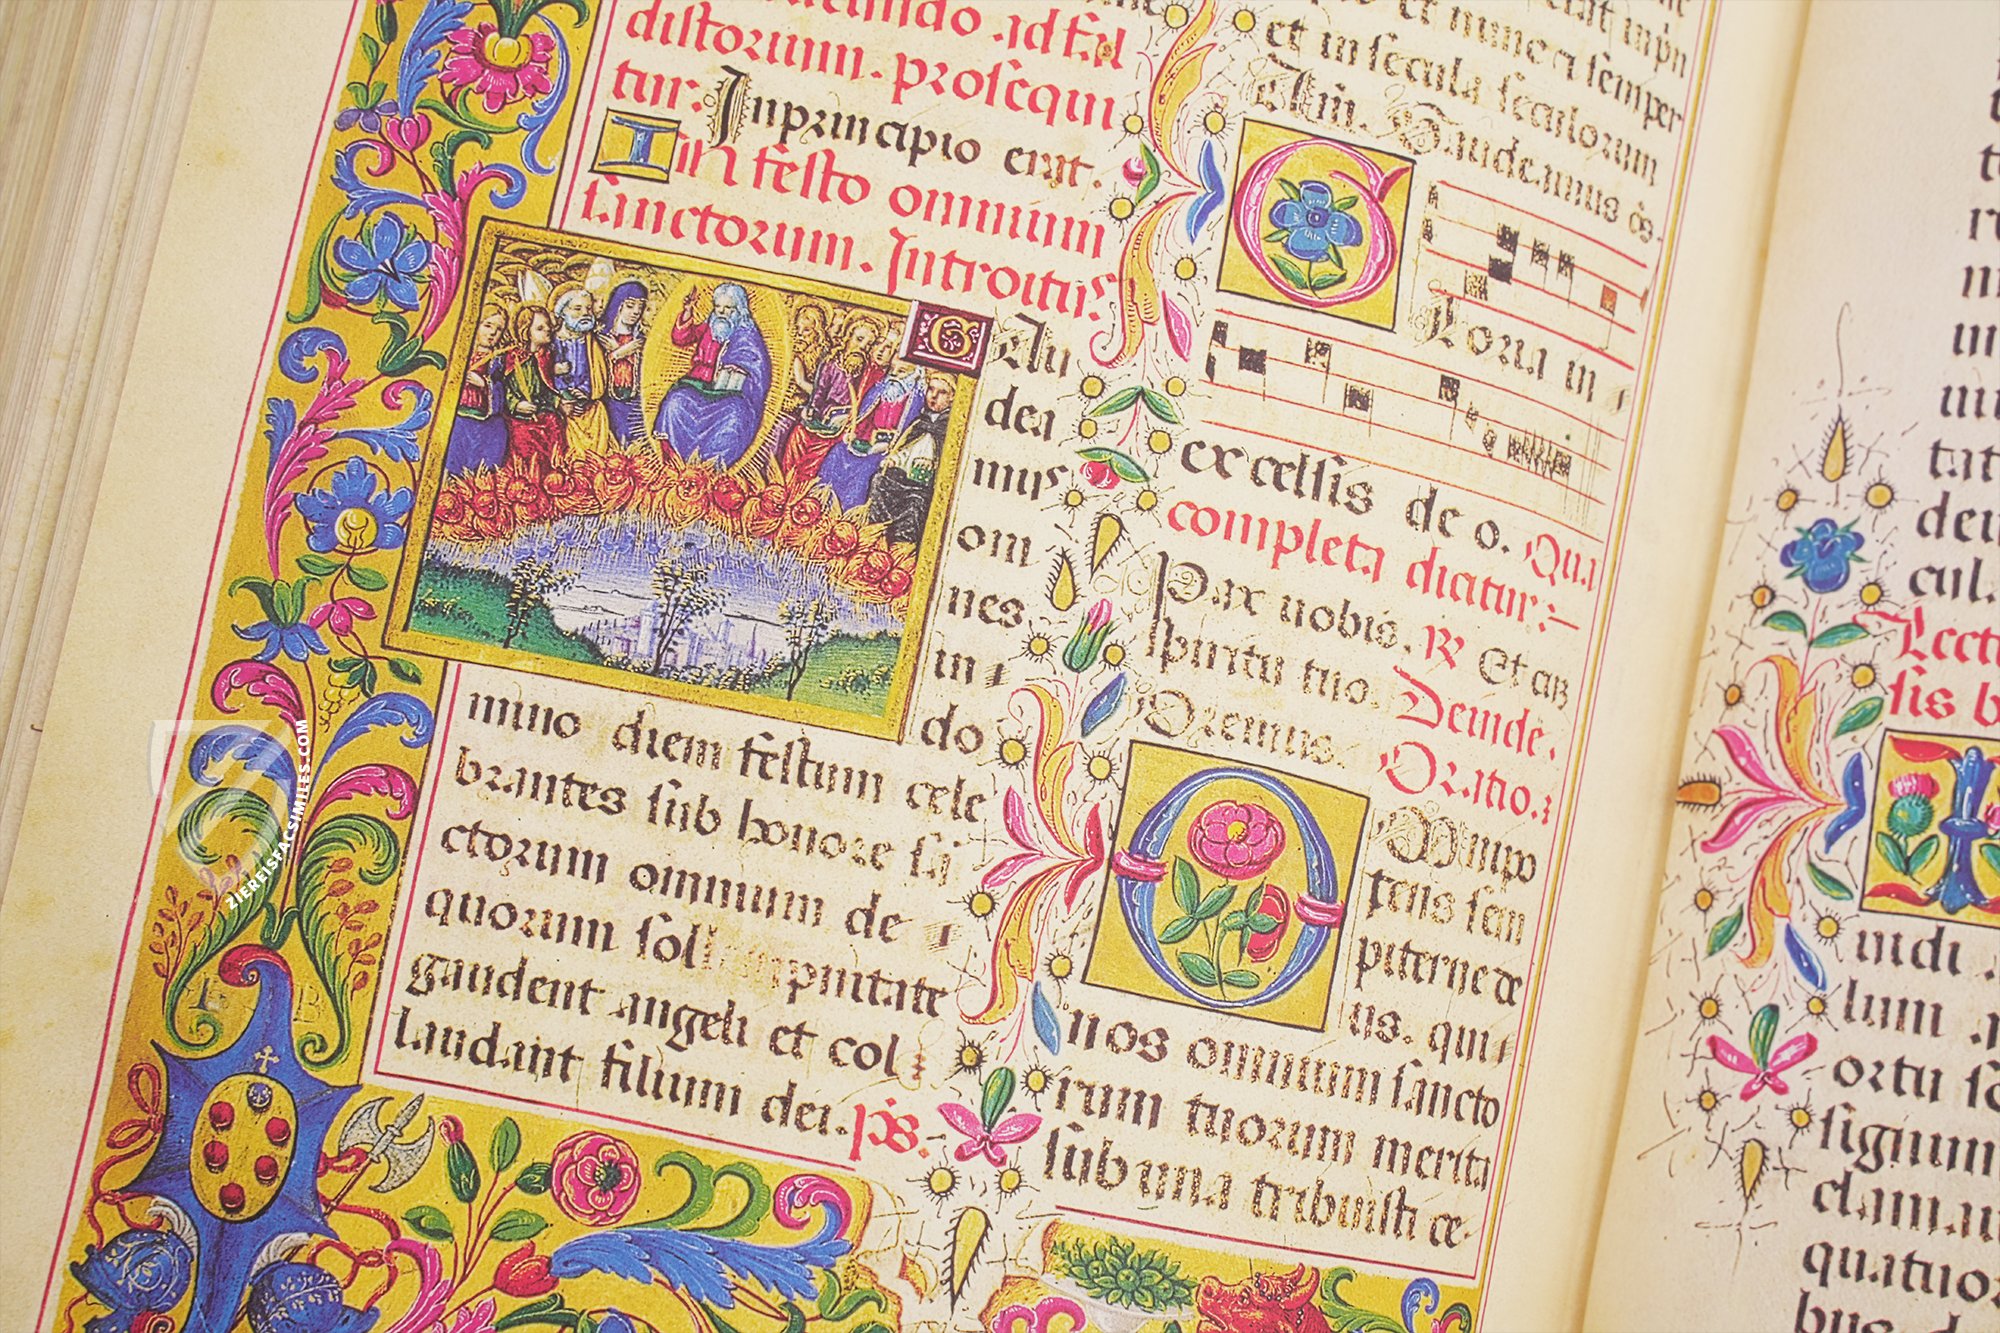 distorum. prosequi
tur: Inprincipio erat.
In festo omnium
sanctorum. Introitus
Gau
dea
mus
om
nes
in
do
mino diem festum cele
brantes sub honore sa
ctorum omnium de
quorum soll pnitate
gaudent angeli et col
laudant filium dei. ps.
et nunc et semper
et in secula seculorum
Am. Gaudeamus os.
Gloria in
excelsis deo. Qua
completa dicitur:
Pax vobis. R Et cu
spiritu tuo. Deinde.
Oremus. Oratio.
Omnipo
tens sem
piterne de
us. qui
nos omnium sancto
rum tuorum merita
sub una tribuisti ce
tat
deu
cul.
Lecti
sis b
nidi.
lum
ortu so
signum
clamau
quatuor
bus
ZIEREISFACSIMILES.COM